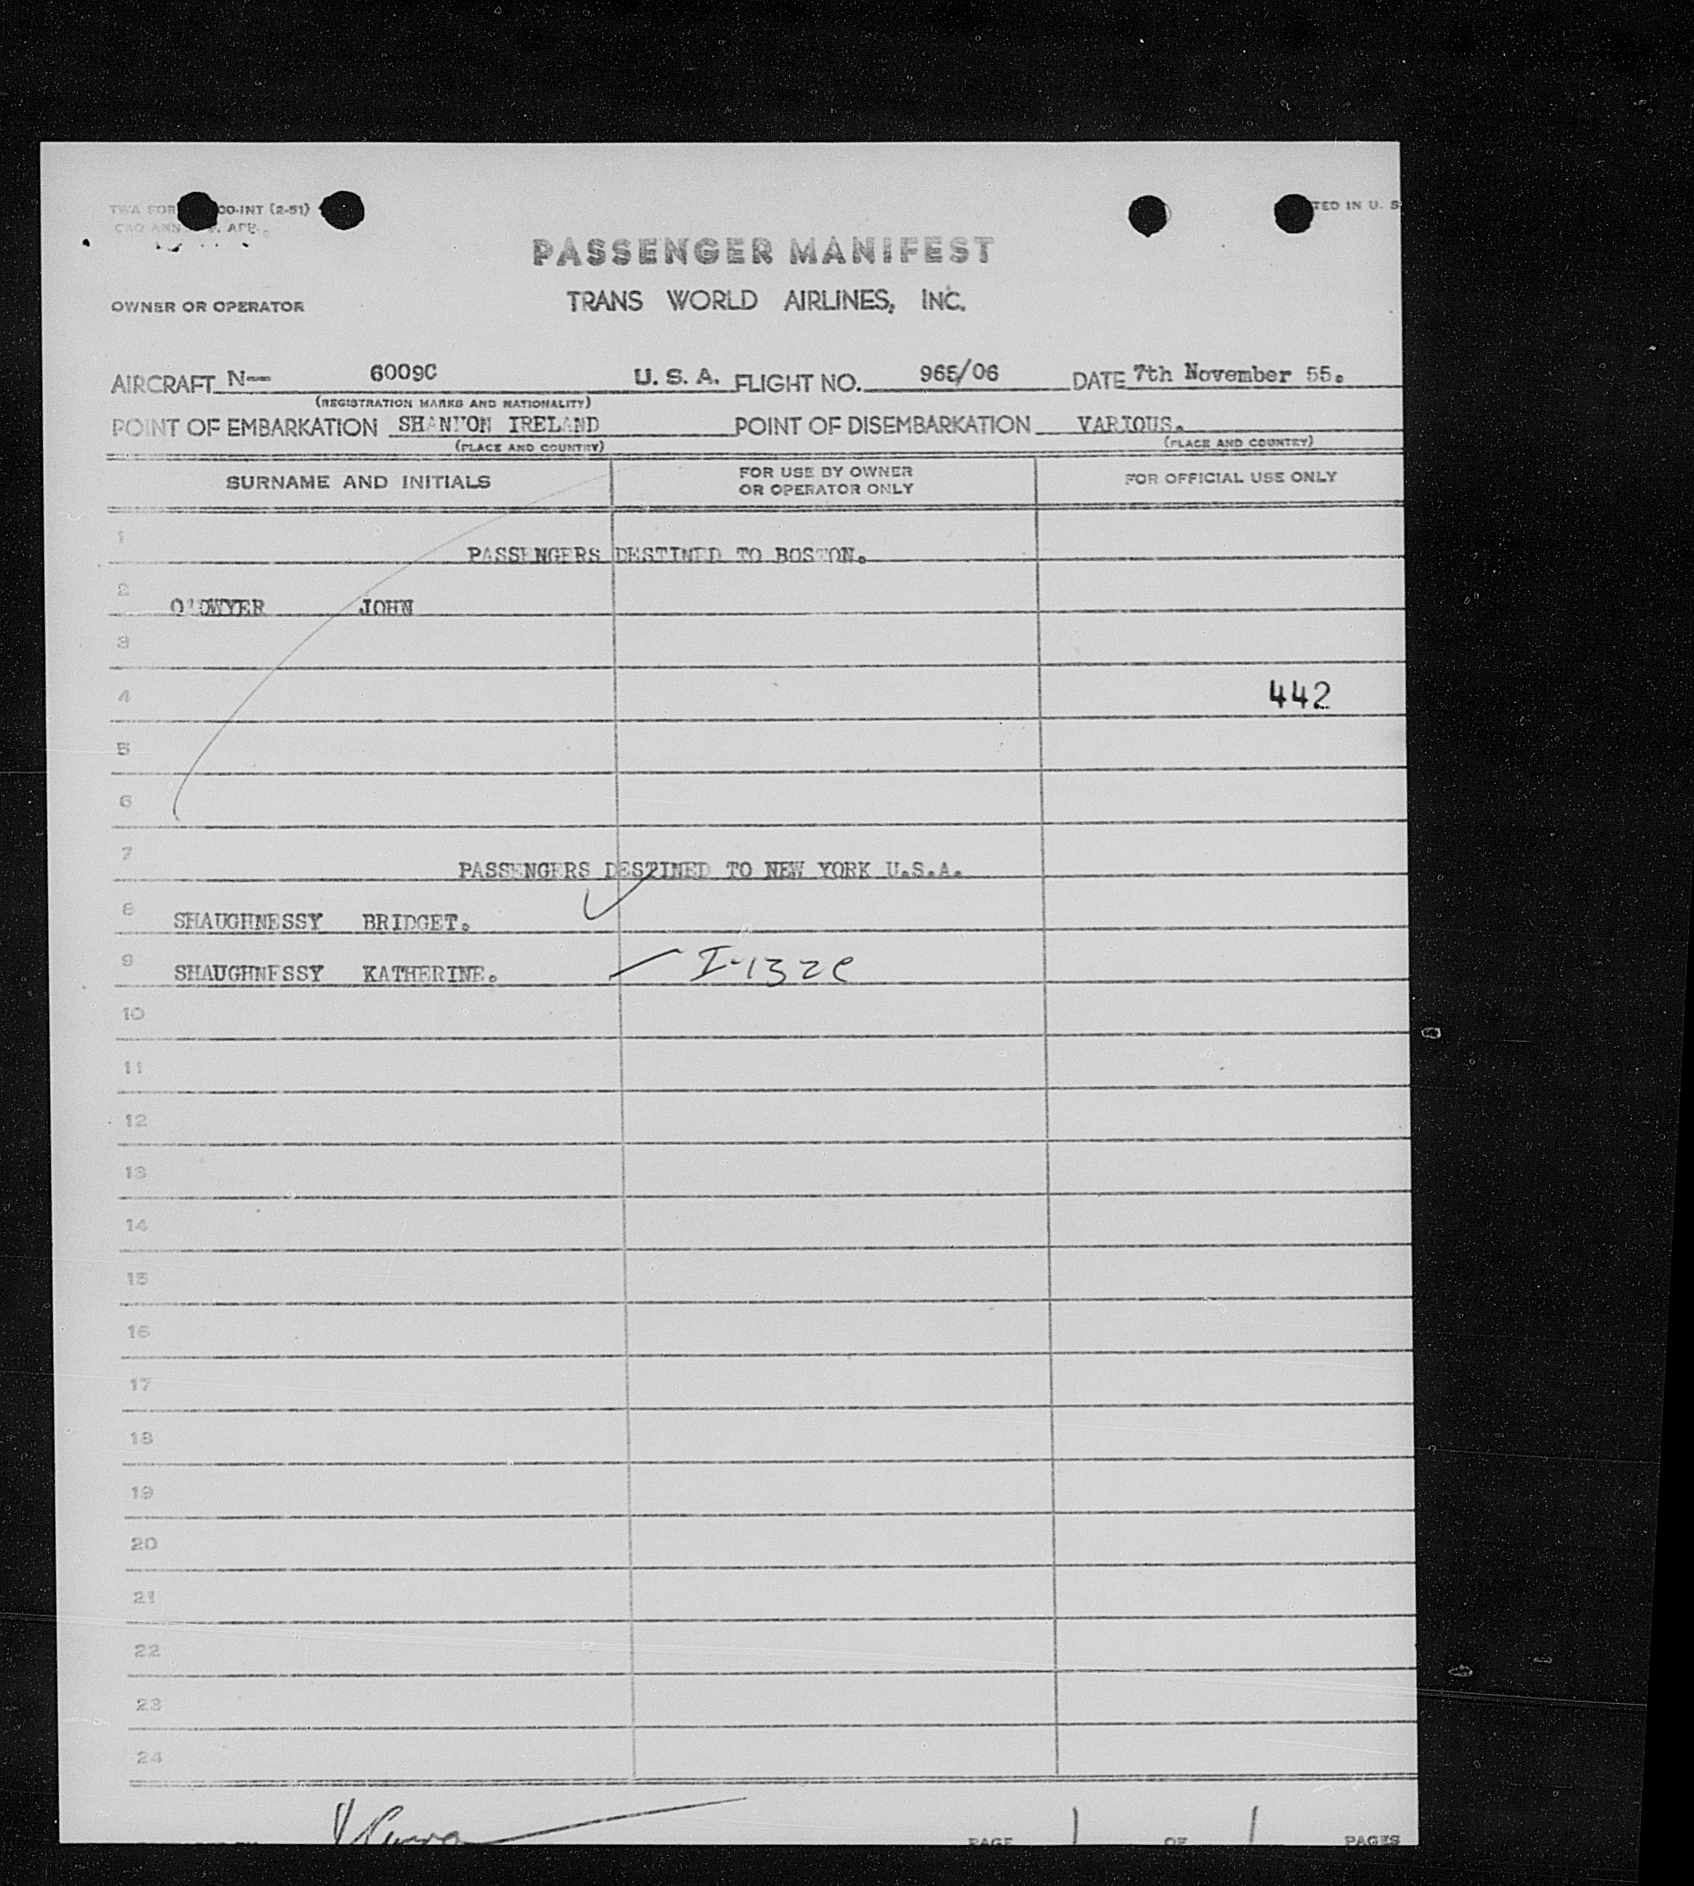 TWA FOR 00-INT (2-51) TED IN U. S
PASSENGER MANIFEST
OWNER OR OPERATOR TRANS WORLD AIRLINES, INC.
AIRCRAFT N— 6009C U. S. A. FLIGHT NO. 965/06 DATE 7th November 55.
(REGISTRATION MARKS AND NATIONALITY)
POINT OF EMBARKATION SHANNON IRELAND POINT OF DISEMBARKATION VARIOUS.
(PLACE AND COUNTRY) (PLACE AND COUNTRY)
SURNAME AND INITIALS FOR USE BY OWNER OR OPERATOR ONLY FOR OFFICIAL USE ONLY
1 PASSENGERS DESTINED TO BOSTON.
2 O'DWYER JOHN
3
4 442
5
6
7 PASSENGERS DESTINED TO NEW YORK U.S.A.
8 SHAUGHNESSY BRIDGET.
9 SHAUGHNESSY KATHERINE. I-132e
10
11
12
13
14
15
16
17
18
19
20
21
22
23
24
PAGE 1 OF 1 PAGES